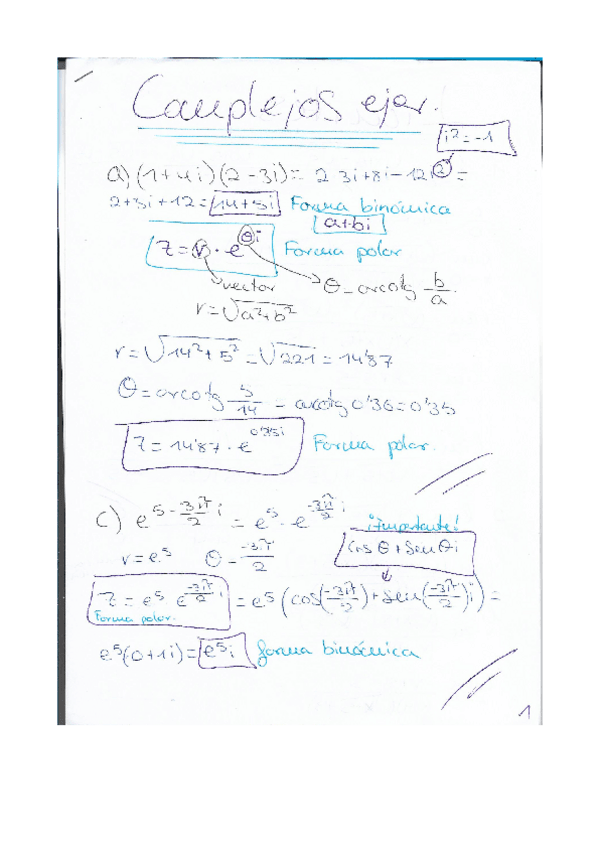 Complejos ejer.
i²=-1
a) (1+4i)(2-3i)= 2 3i+8i-12i² =
2+5i+12= 14+5i Forma binómica
a+bi
z=r·e^θi Forma polar
vector θ=arcotg b/a
r=√a²+b²
r=√14²+5² = √221 = 14'87
θ=arcotg 5/14 = arcotg 0'36=0'35
z=14'87·e^0'35i Forma polar.
c) e^5-3π/2 i = e^5·e^-3π/2 i
¡Importante!
r=e^5 θ=-3π/2 cos θ+sen θi
z=e^5 e^-3π/2 i = e^5(cos(-3π/2)+sen(-3π/2)i)=
Forma polar.
e^5(0+1i)= e^5i forma binómica
1